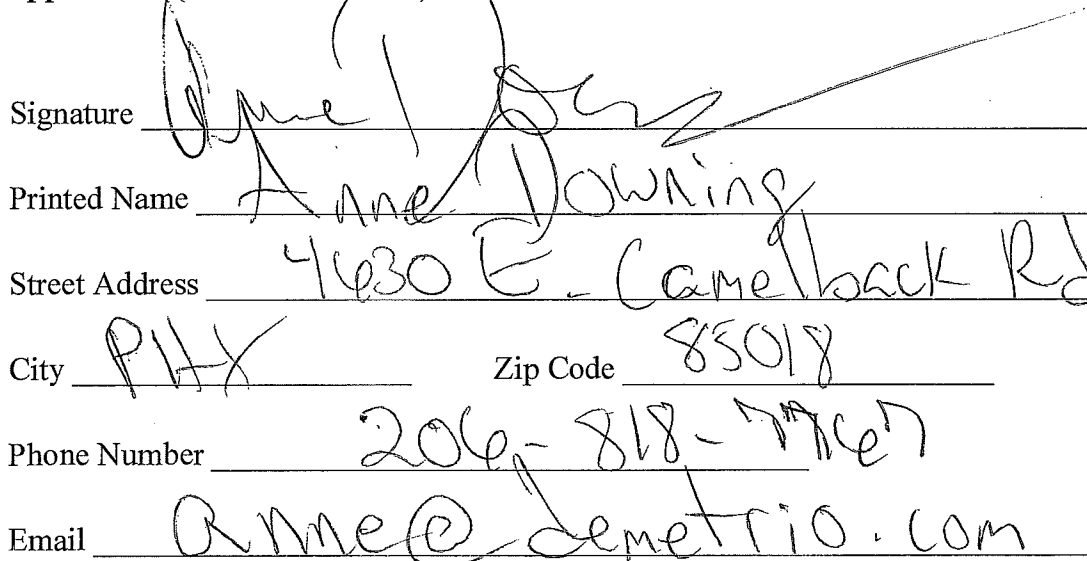 Signature Anne
Printed Name Anne Downing
Street Address 4630 E. Camelback Rd
City PHX Zip Code 85018
Phone Number 206-818-7767
Email anne@demetrio.com